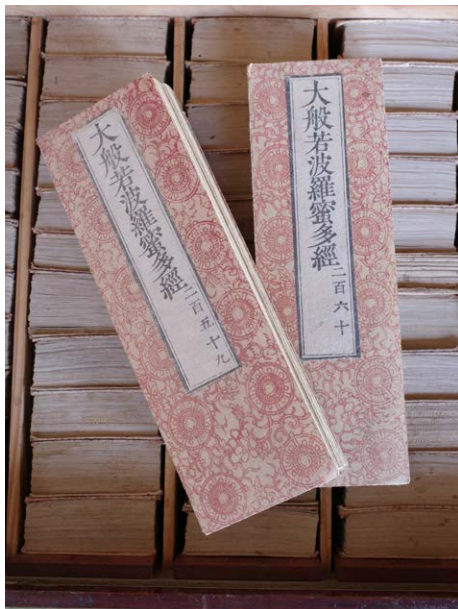 大般若波羅蜜多經二百五十九
大般若波羅蜜多經二百六十